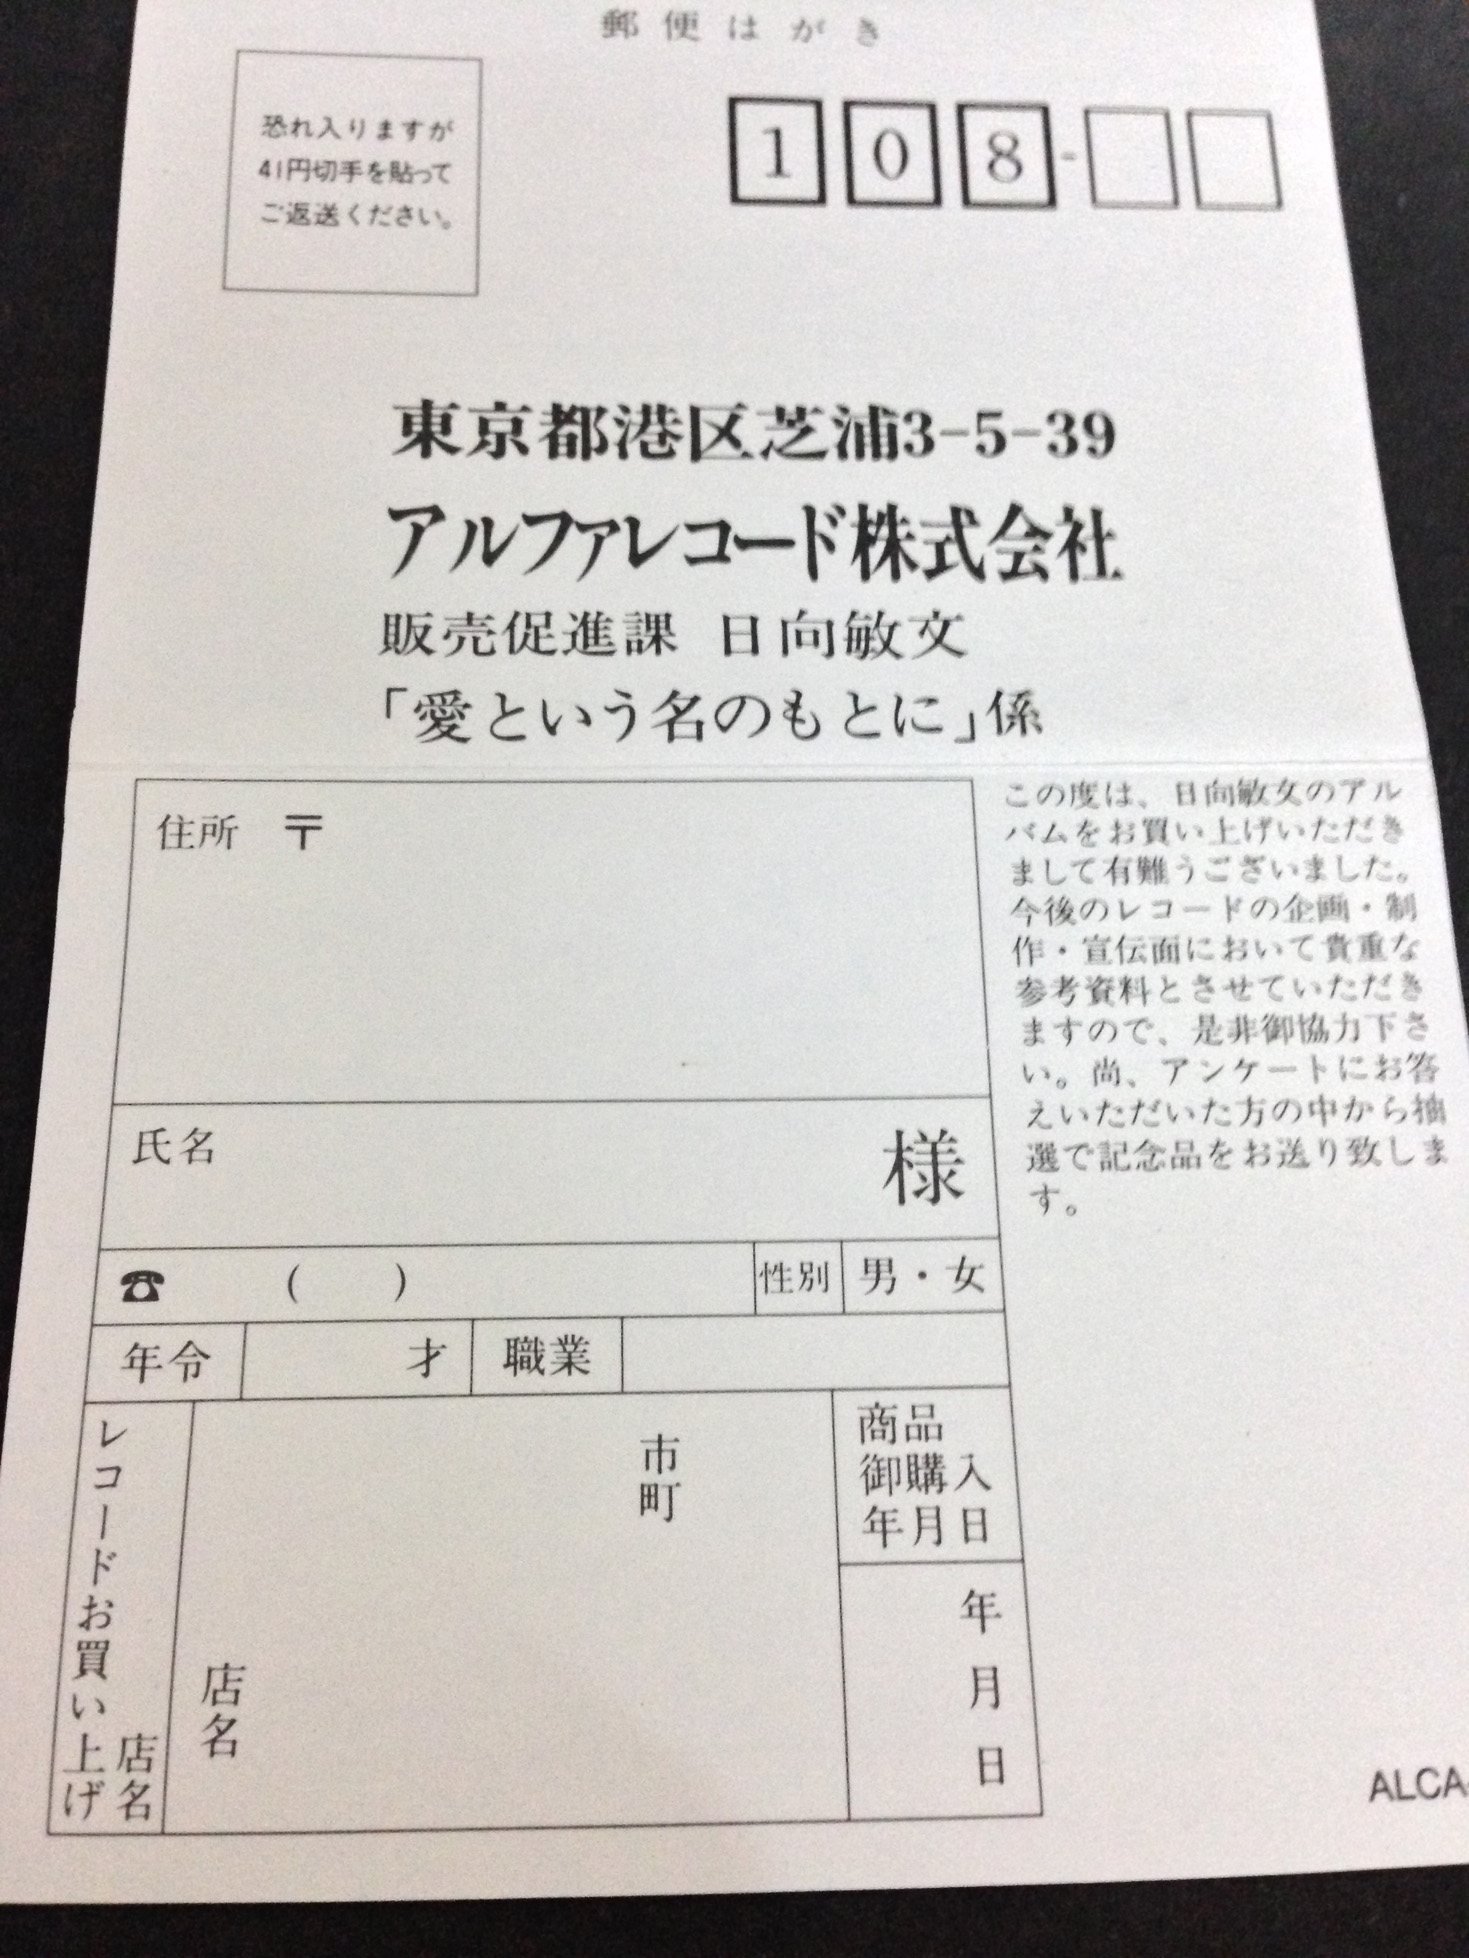 郵便はがき
恐れ入りますが
41円切手を貼って
ご返送ください。
108-
東京都港区芝浦3-5-39
アルファレコード株式会社
販売促進課 日向敏文
「愛という名のもとに」係
この度は、日向敏文のアル
バムをお買い上げいただき
まして有難うございました。
今後のレコードの企画・制
作・宣伝面において貴重な
参考資料とさせていただき
ますので、是非御協力下さ
い。尚、アンケートにお答
えいただいた方の中から抽
選で記念品をお送り致しま
す。
住所 〒
氏名 様
☎ ( ) 性別 男・女
年令 才 職業
レコードお買い上げ
店名
市
町
店名
商品
御購入
年月日
年
月
日
ALCA-